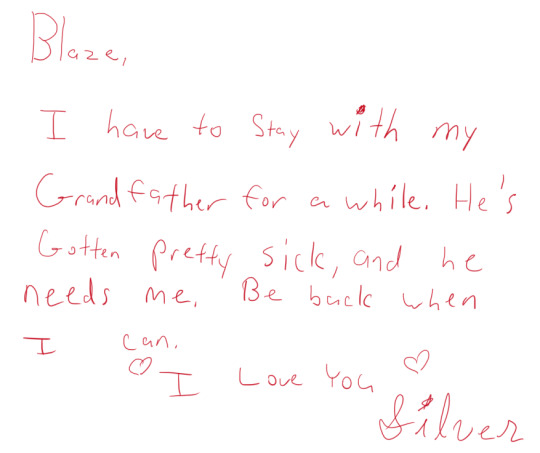 Blaze,
I have to Stay with my
Grandfather for a while. He's
Gotten pretty sick, and he
needs me. Be back when
I can.
♡ I Love You ♡
Silver